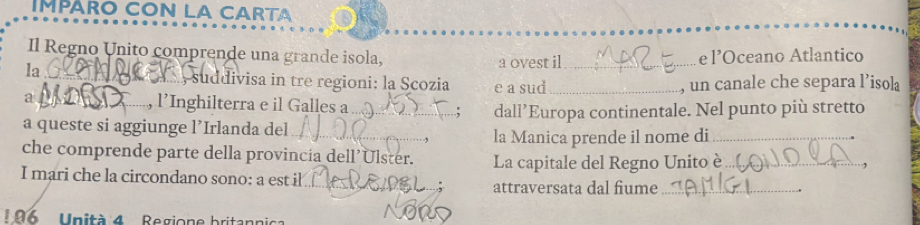 IMPARO CON LA CARTA
Il Regno Unito comprende una grande isola,
la , suddivisa in tre regioni: la Scozia
a NORD, l'Inghilterra e il Galles a OVEST;
a queste si aggiunge l'Irlanda del NORD,
che comprende parte della provincia dell'Ulster.
I mari che la circondano sono: a est il MARE DEL NORD;
a ovest il MARE e l'Oceano Atlantico
e a sud , un canale che separa l'isola
dall'Europa continentale. Nel punto più stretto
la Manica prende il nome di .
La capitale del Regno Unito è LONDRA,
attraversata dal fiume TAMIGI.
106 Unità 4 Regione britannica